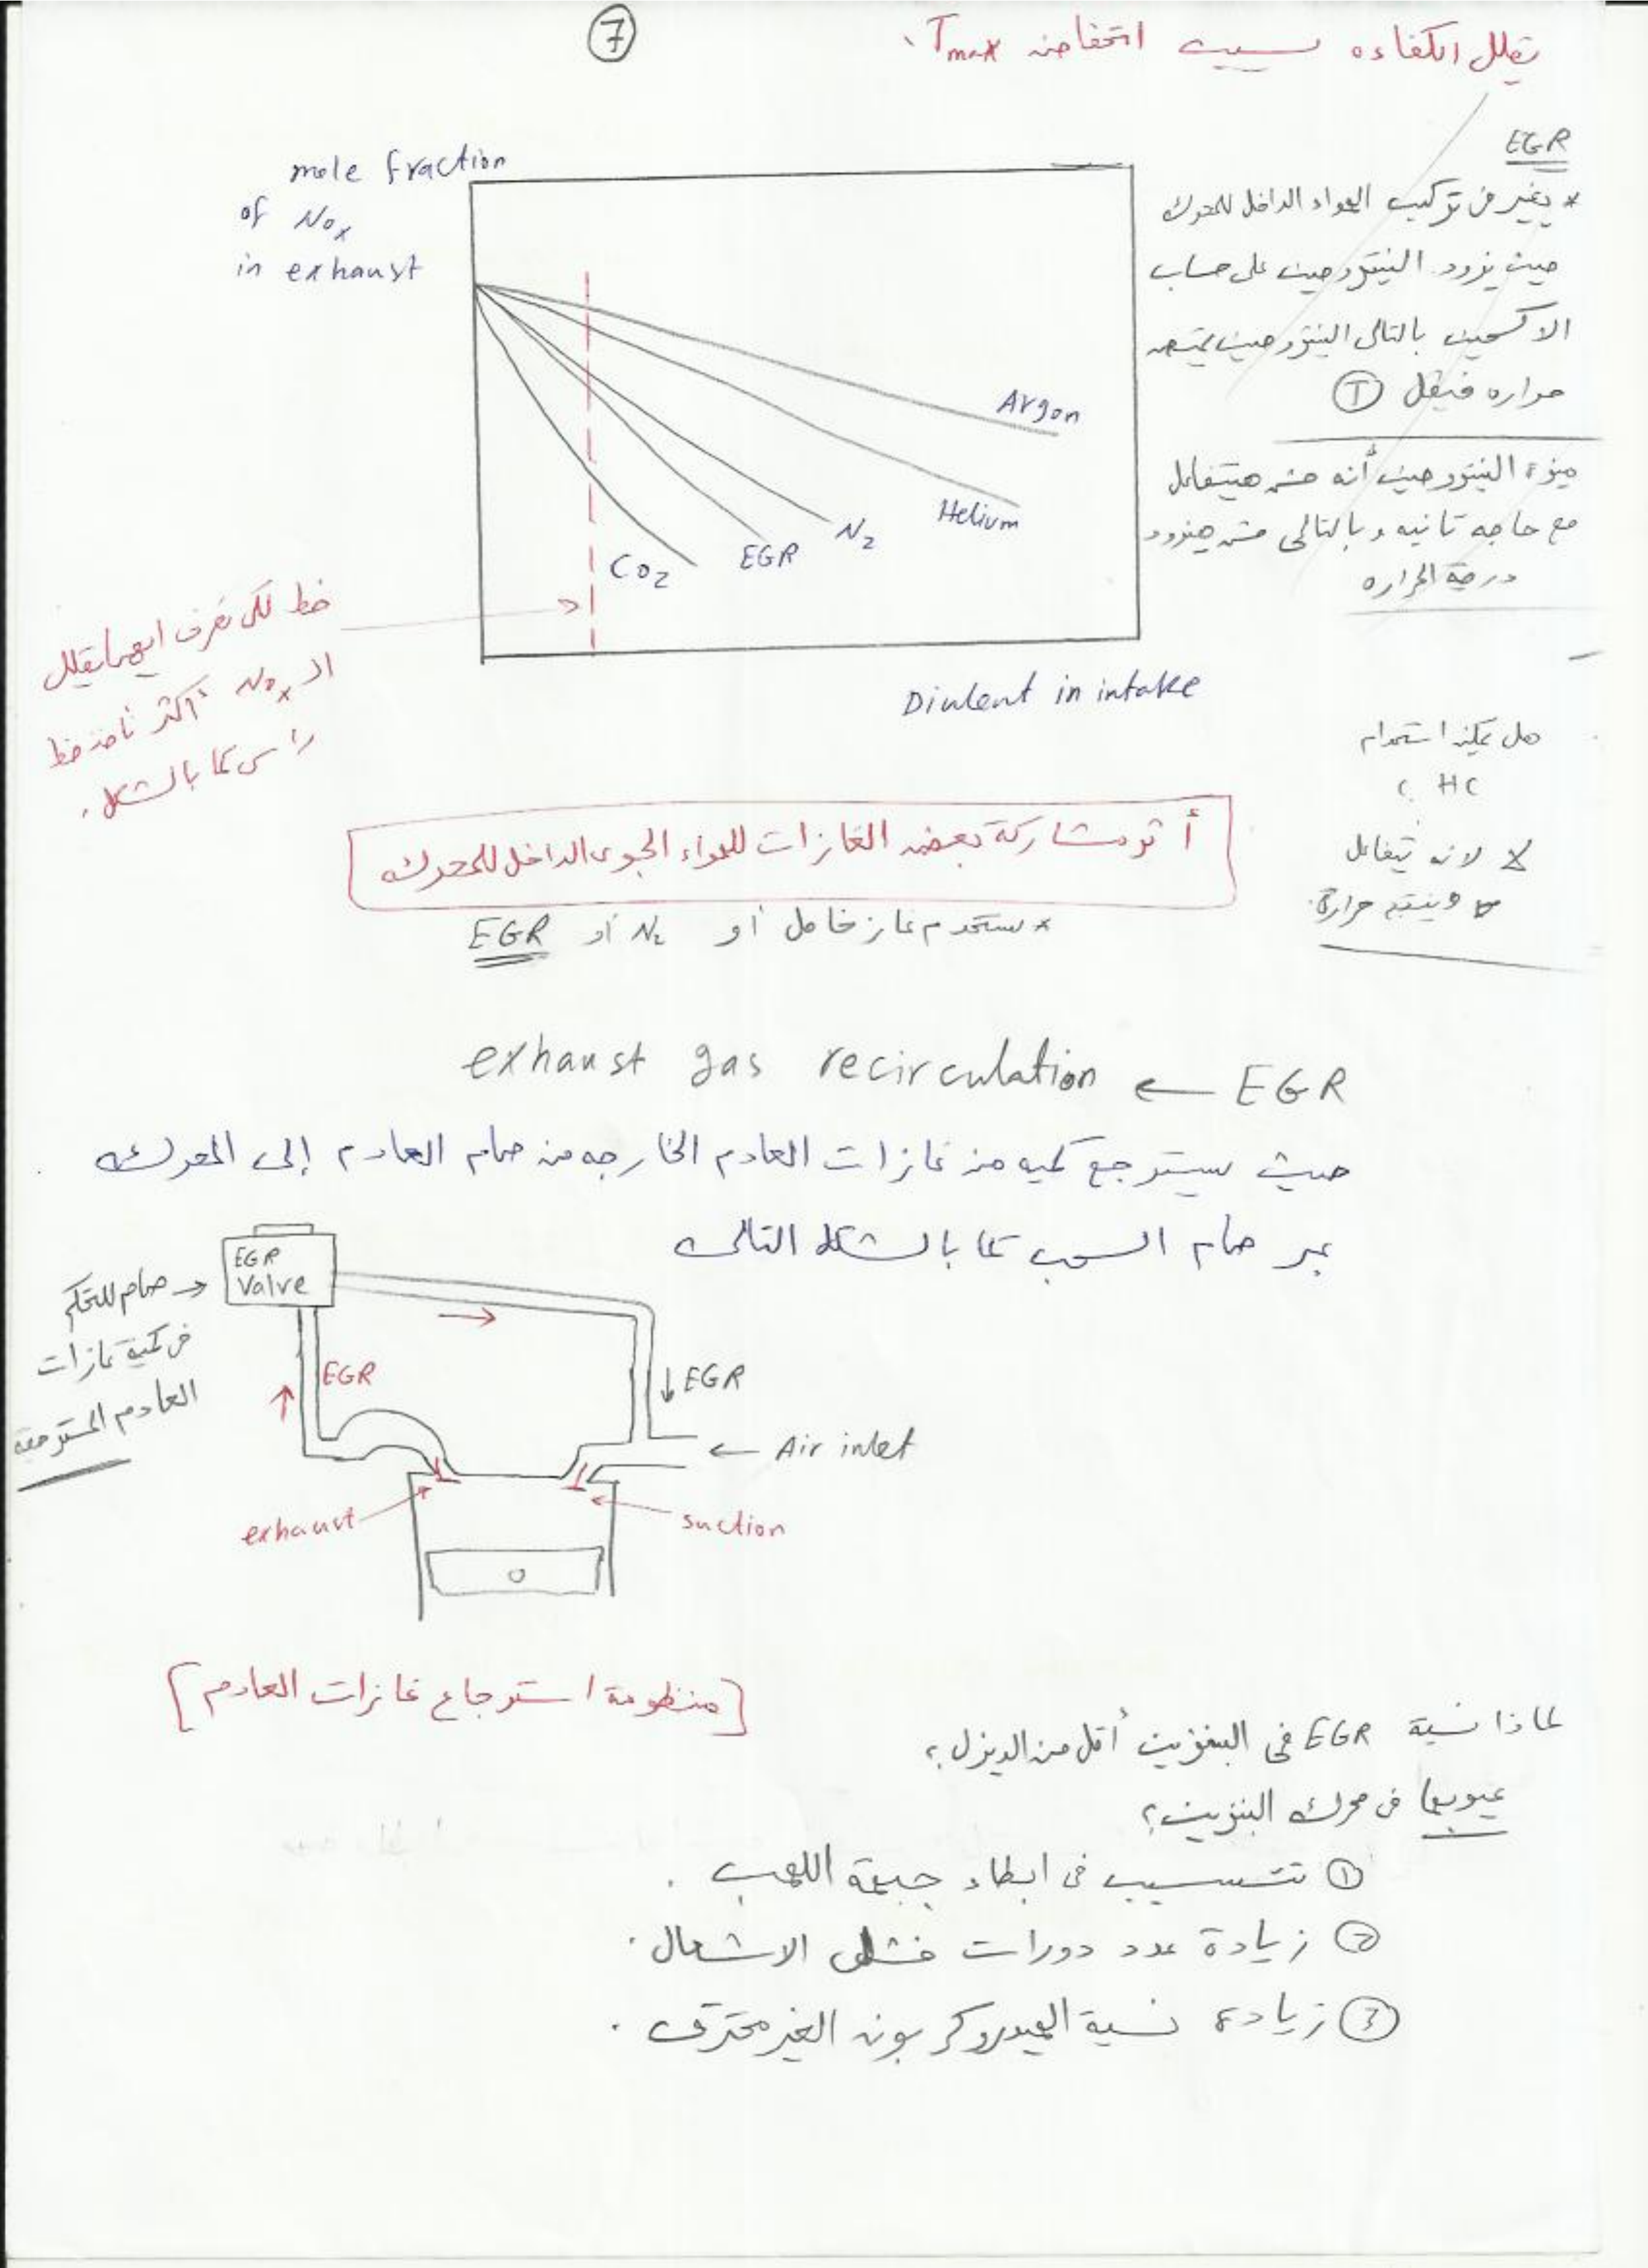 7
تقلل الكفاءه بسبب انخفاض Tmax.
EGR
* يغير من تركيب الهواء الداخل للمحرك
حيث يزود النيتروجين على حساب
الاكسجين بالتالى النيتروجين يمتص
حراره فيقل T
ميزة النيتروجين أنه مش هيتفاعل
مع حاجه تانيه وبالتالى مش هيزود
درجة الحراره
mole fraction
of NOx
in exhaust
Argon
Helium
N2
EGR
CO2
Diulent in intake
خط لكى نعرف ايهما يقلل
الـ NOx أكثر نأخذ خط
رأسى كما بالشكل.
هل يمكن استخدام
HC ؟
لا لانه يتفاعل
وينتج حرارة.
أثر مشاركة بعض الغازات للهواء الجوى الداخل للمحرك
* نستخدم غاز خامل أو N2 أو EGR
exhaust gas recirculation ← EGR
حيث يسترجع كميه من غازات العادم الخارجه من صمام العادم إلى المحرك
عبر صمام السحب كما بالشكل التالى
EGR
Valve
صمام للتحكم
فى كمية غازات
العادم المسترجعة
EGR
↓ EGR
← Air inlet
exhaust
suction
[منظومة استرجاع غازات العادم]
لماذا نسبة EGR فى البنزين أقل من الديزل؟
عيوبها فى محرك البنزين؟
① تتسبب فى ابطاء جبهة اللهب.
② زيادة عدد دورات فشل الاشعال.
③ زيادة نسبة الهيدروكربون الغير محترق.